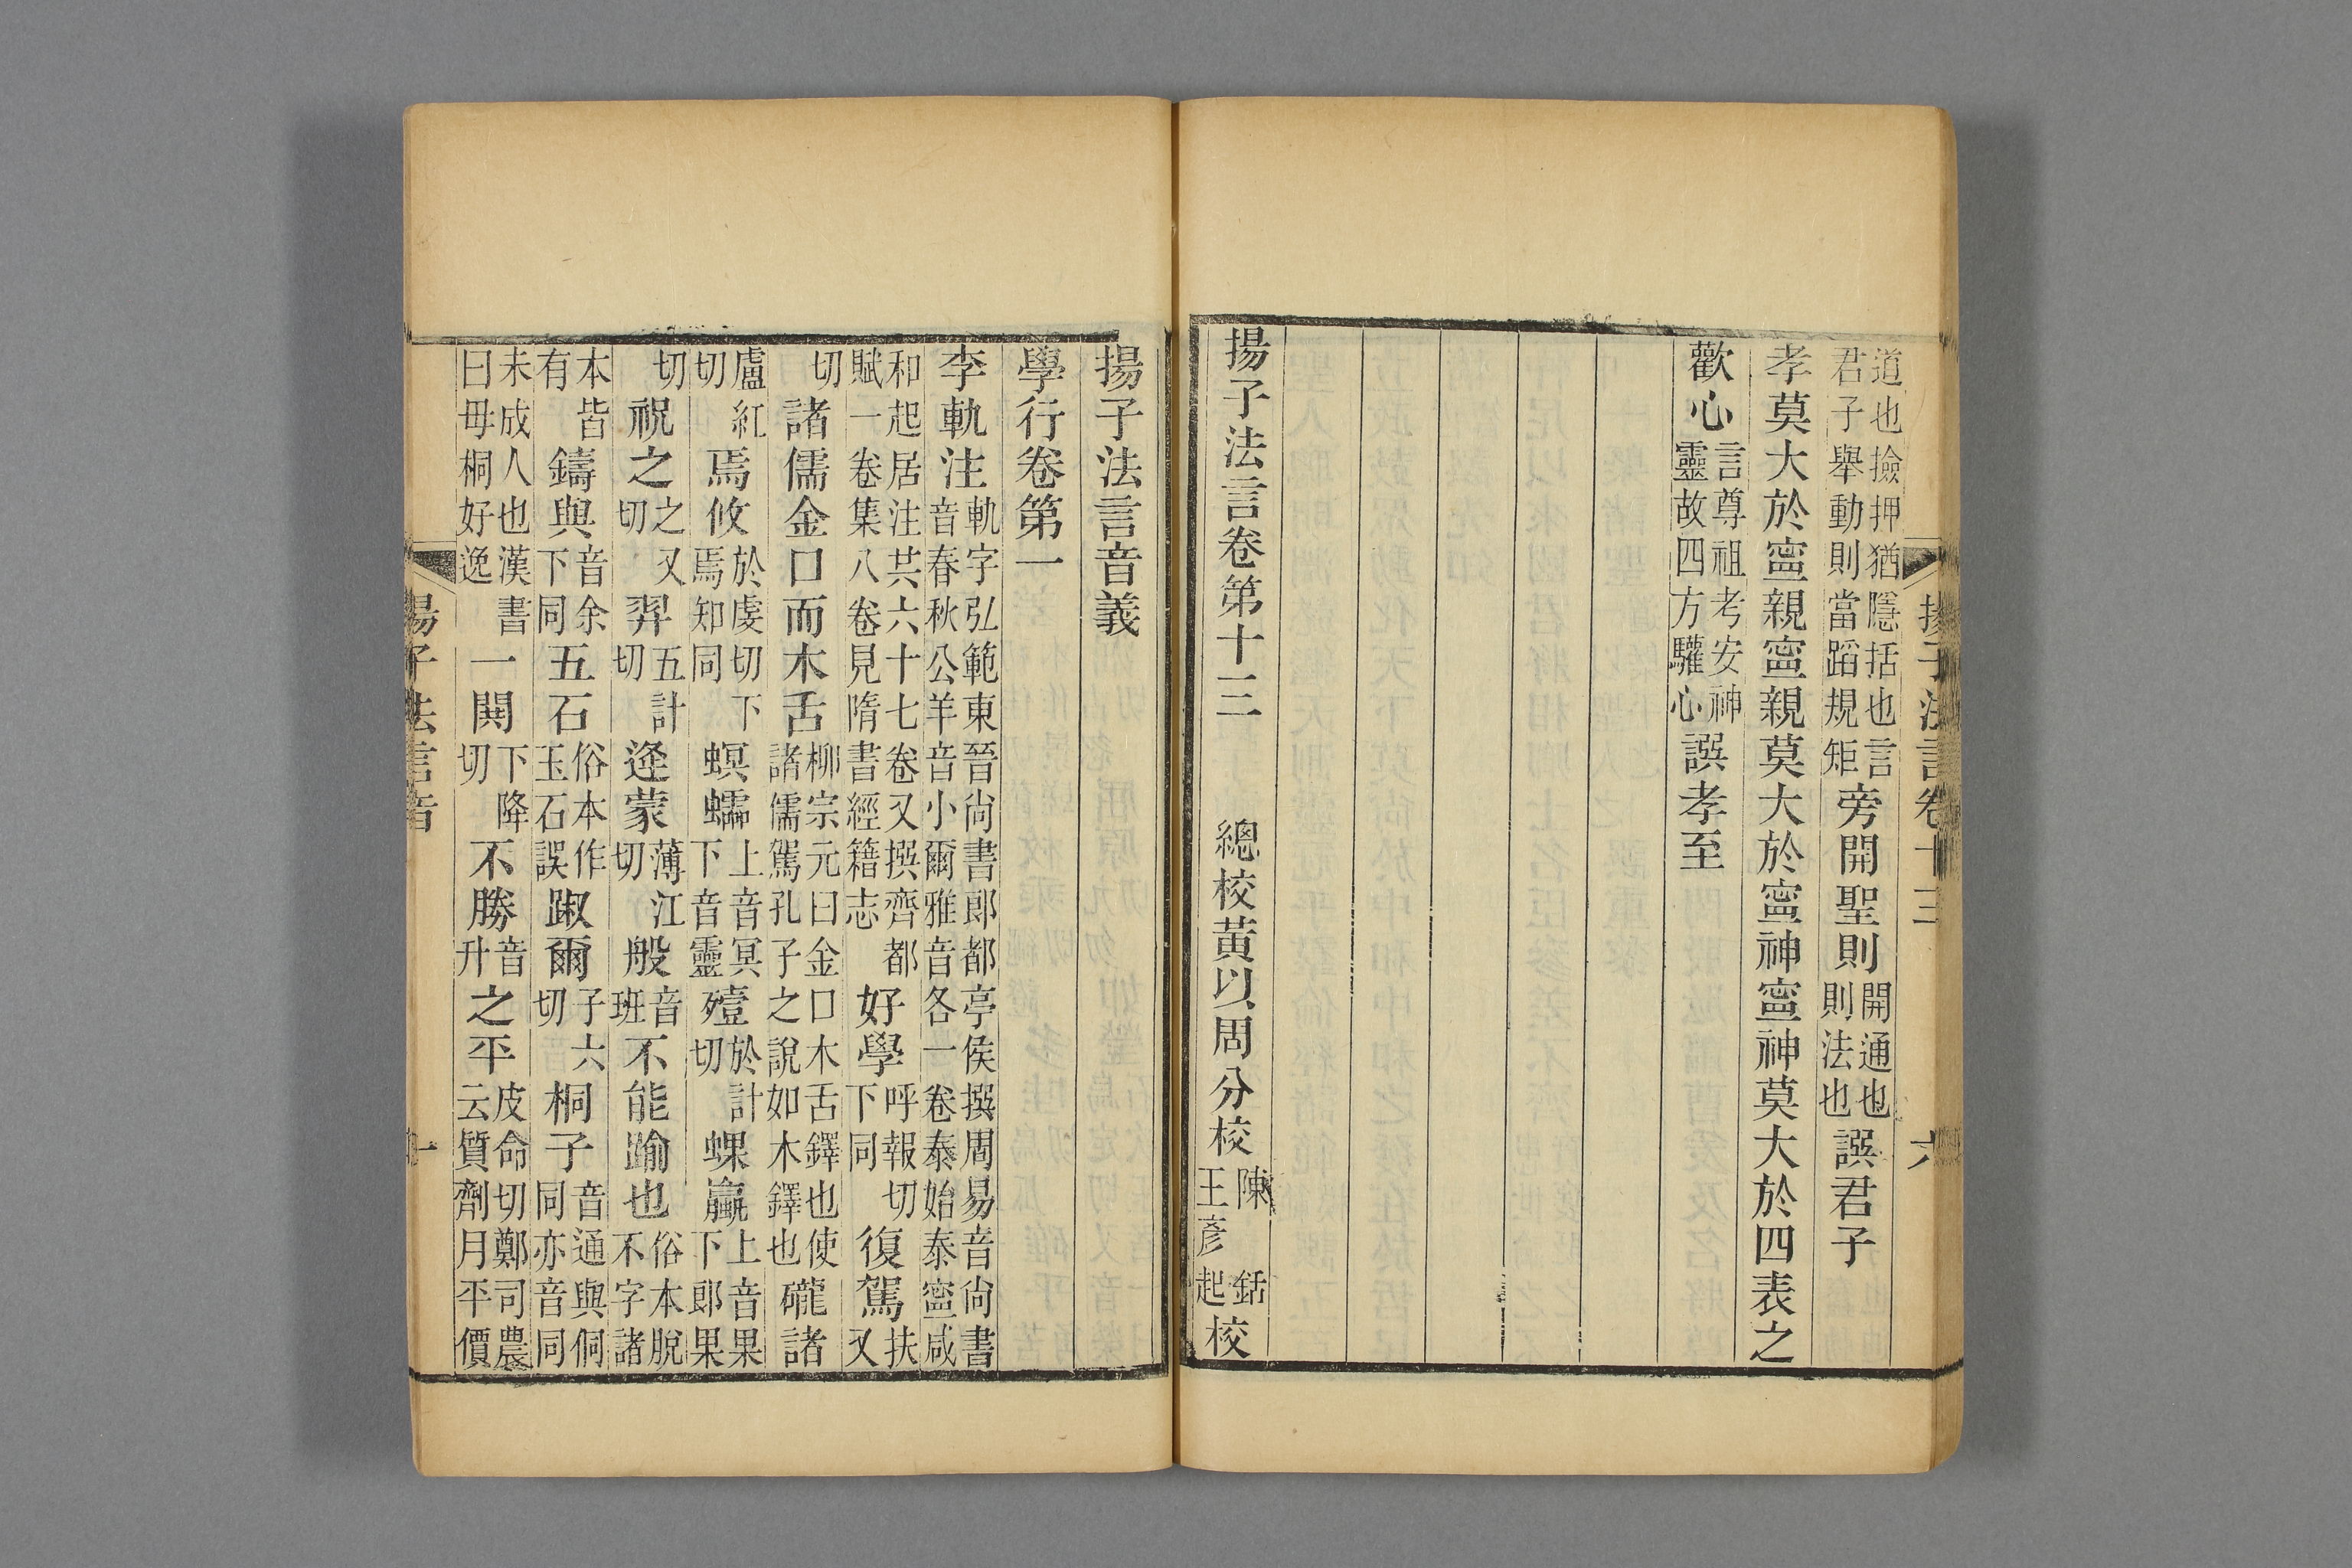 揚子法言卷十三
六
道也撿押猶隱括也言
君子舉動則當蹈規矩
旁開聖則
開通也
則法也
譔君子
孝莫大於寍親寍親莫大於寍神寍神莫大於四表之
歡心
言尊祖考安神
靈故四方驩心
譔孝至
揚子法言卷第十三
總校黃以周分校
陳銛
王彥起
校
揚子法言音義
學行卷第一
李軌注
軌字弘範東晉尙書郎都亭侯撰周易音尙書
音春秋公羊音小爾雅音各一卷泰始泰寍咸
和起居注共六十七卷又撰齊都
賦一卷集八卷見隋書經籍志
好學
呼報切
下同
復駕
扶又
切
諸儒金口而木舌
柳宗元曰金口木舌鐸也使
諸儒駕孔子之說如木鐸也
礲諸
盧紅
切
焉攸
於虔切下
焉知同
螟蠕
上音冥
下音靈
殪
於計
切
蜾蠃
上音果
下郎果
切
祝之
之又
切
羿
五計
切
逄蒙
薄江
切
般
音
班
不能踰也
俗本脫
不字諸
本皆
有
鑄與
音余
下同
五石
俗本作
玉石誤
踧爾
子六
切
桐子
音通與侗
同亦音同
未成人也漢書
曰毋桐好逸
一閧
下降
切
不勝
音
升
之平
皮命切鄭司農
云質劑月平價
揚子法言音
一